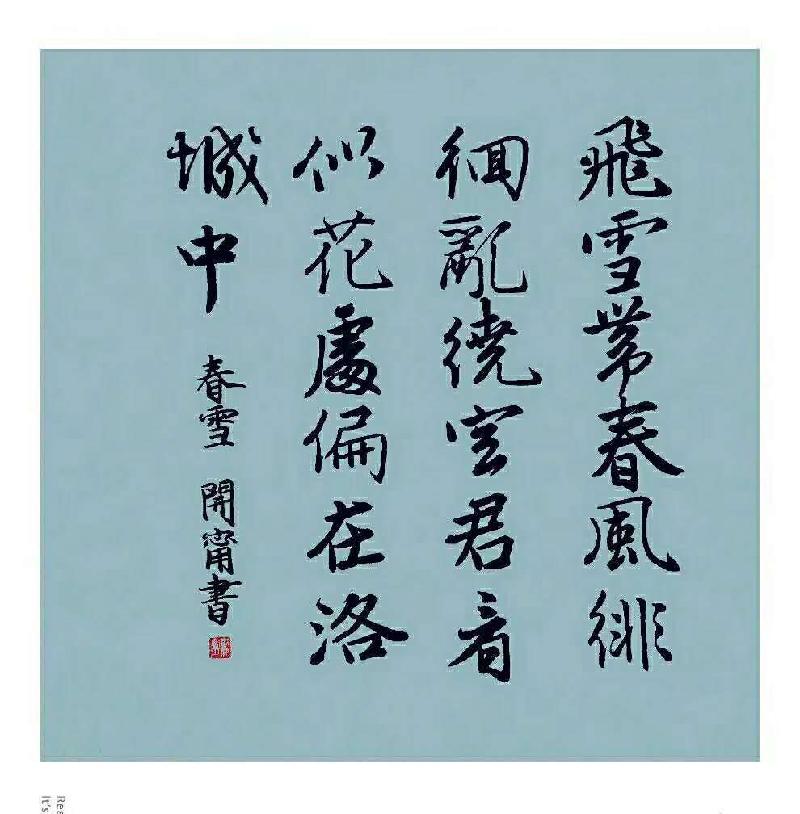 飛雪帶春風徘
徊亂繞空君看
似花處偏在洛
城中 春雪 開甯書
Res
It's